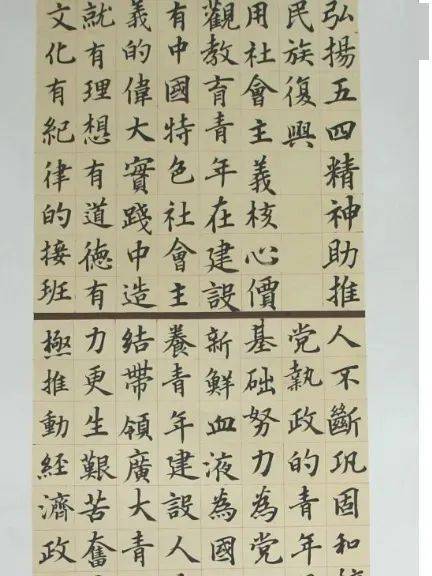 弘揚五四精神助推
民族復興
用社會主義核心價
觀教育青年在建設
有中國特色社會主
義的偉大實踐中造
就有理想有道德有
文化有紀律的接班
人不斷巩固和
党執政的青年
基础努力為党
新鮮血液為國
養青年建設人
結帶領廣大青
力更生艱苦奮
極推動經濟政